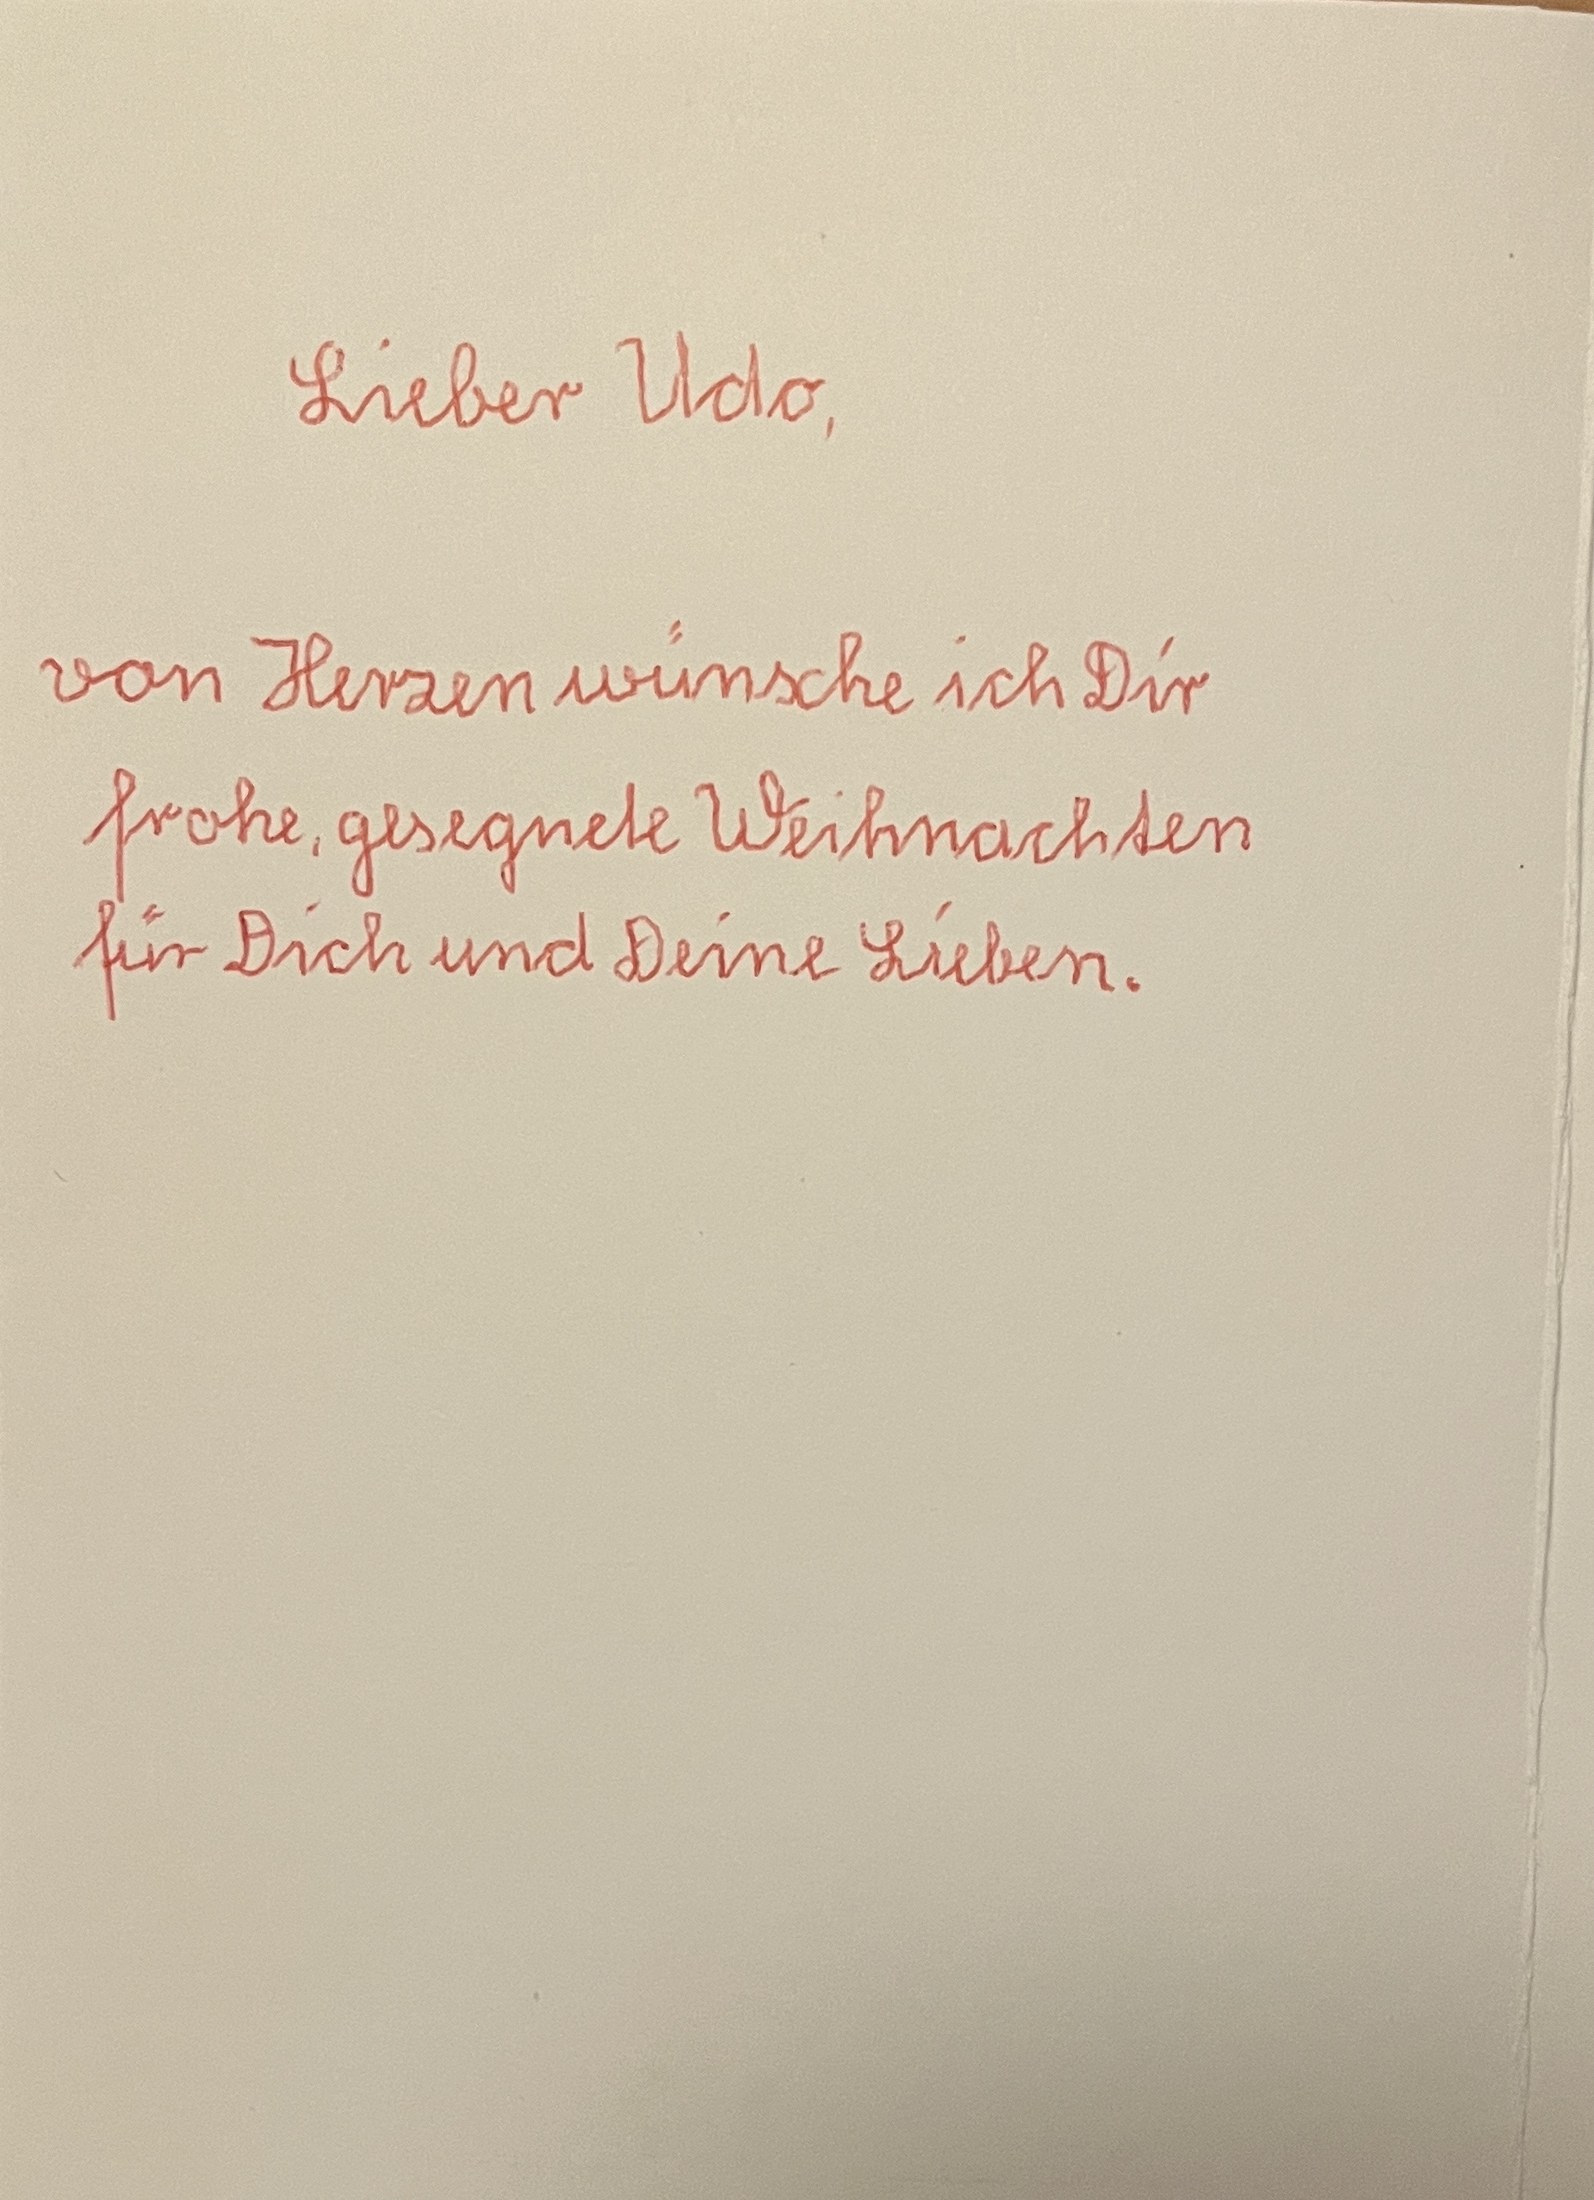 Lieber Udo,
von Herzen wünsche ich Dir
frohe, gesegnete Weihnachten
für Dich und Deine Lieben.